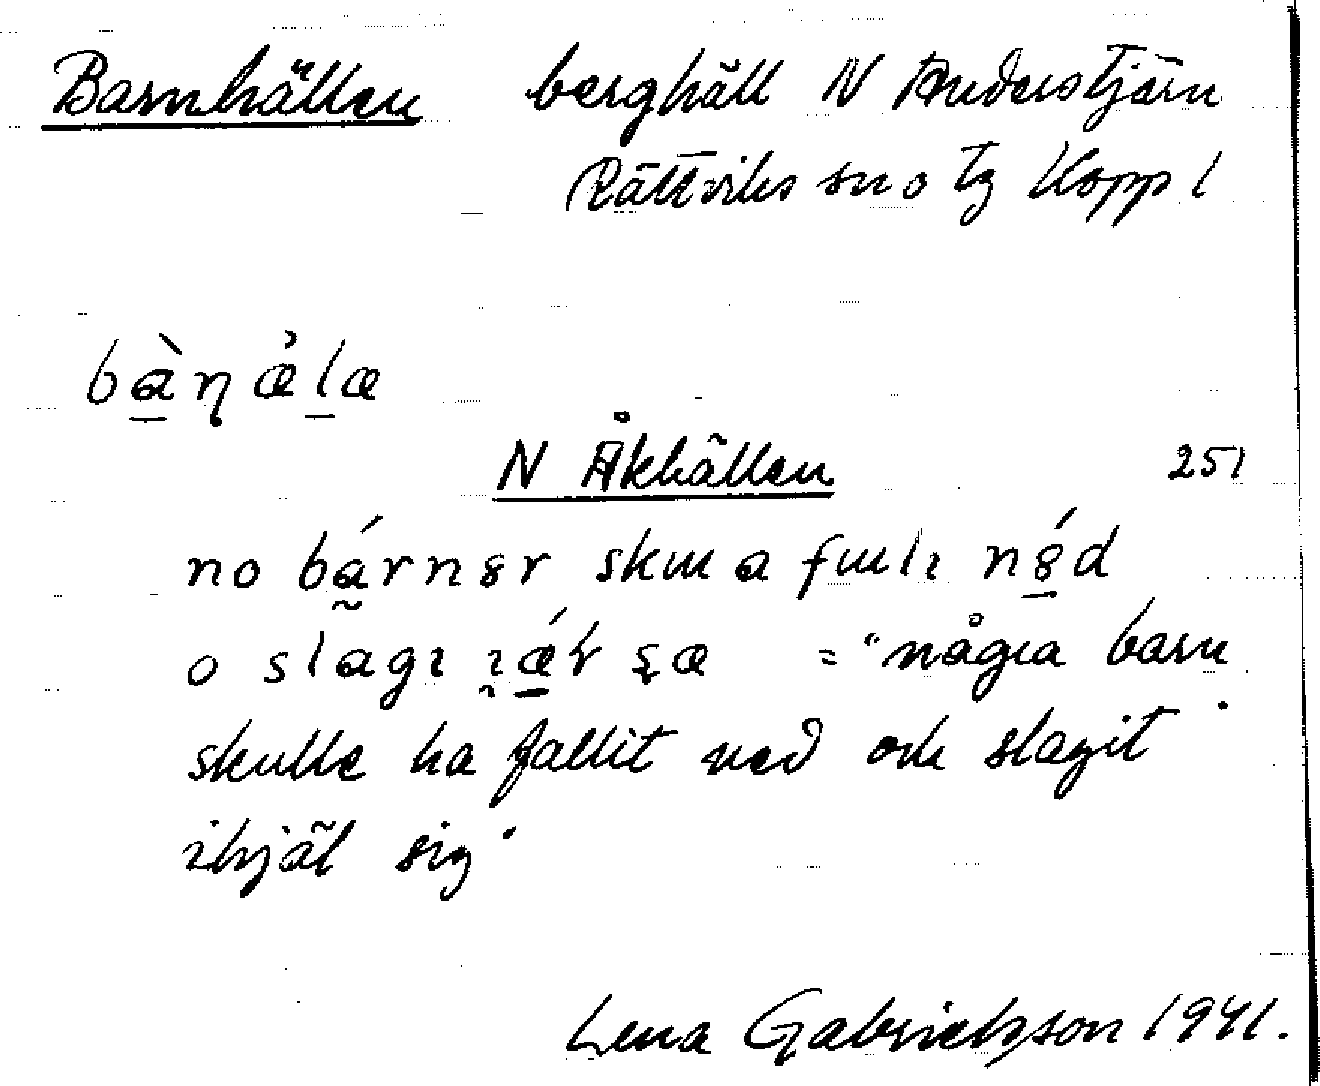 Barnhällen berghäll N Anderstjärn
Rättviks sn o tg Kopp l
bànælæ
N Åkhällen 251
no bárnɞr skuɯ a fɯlı nɞ́d
o slagı ıǽl sæ = "några barn
skulle ha fallit ned och slagit
ihjäl sig"
Lena Gabrielsson 1941.